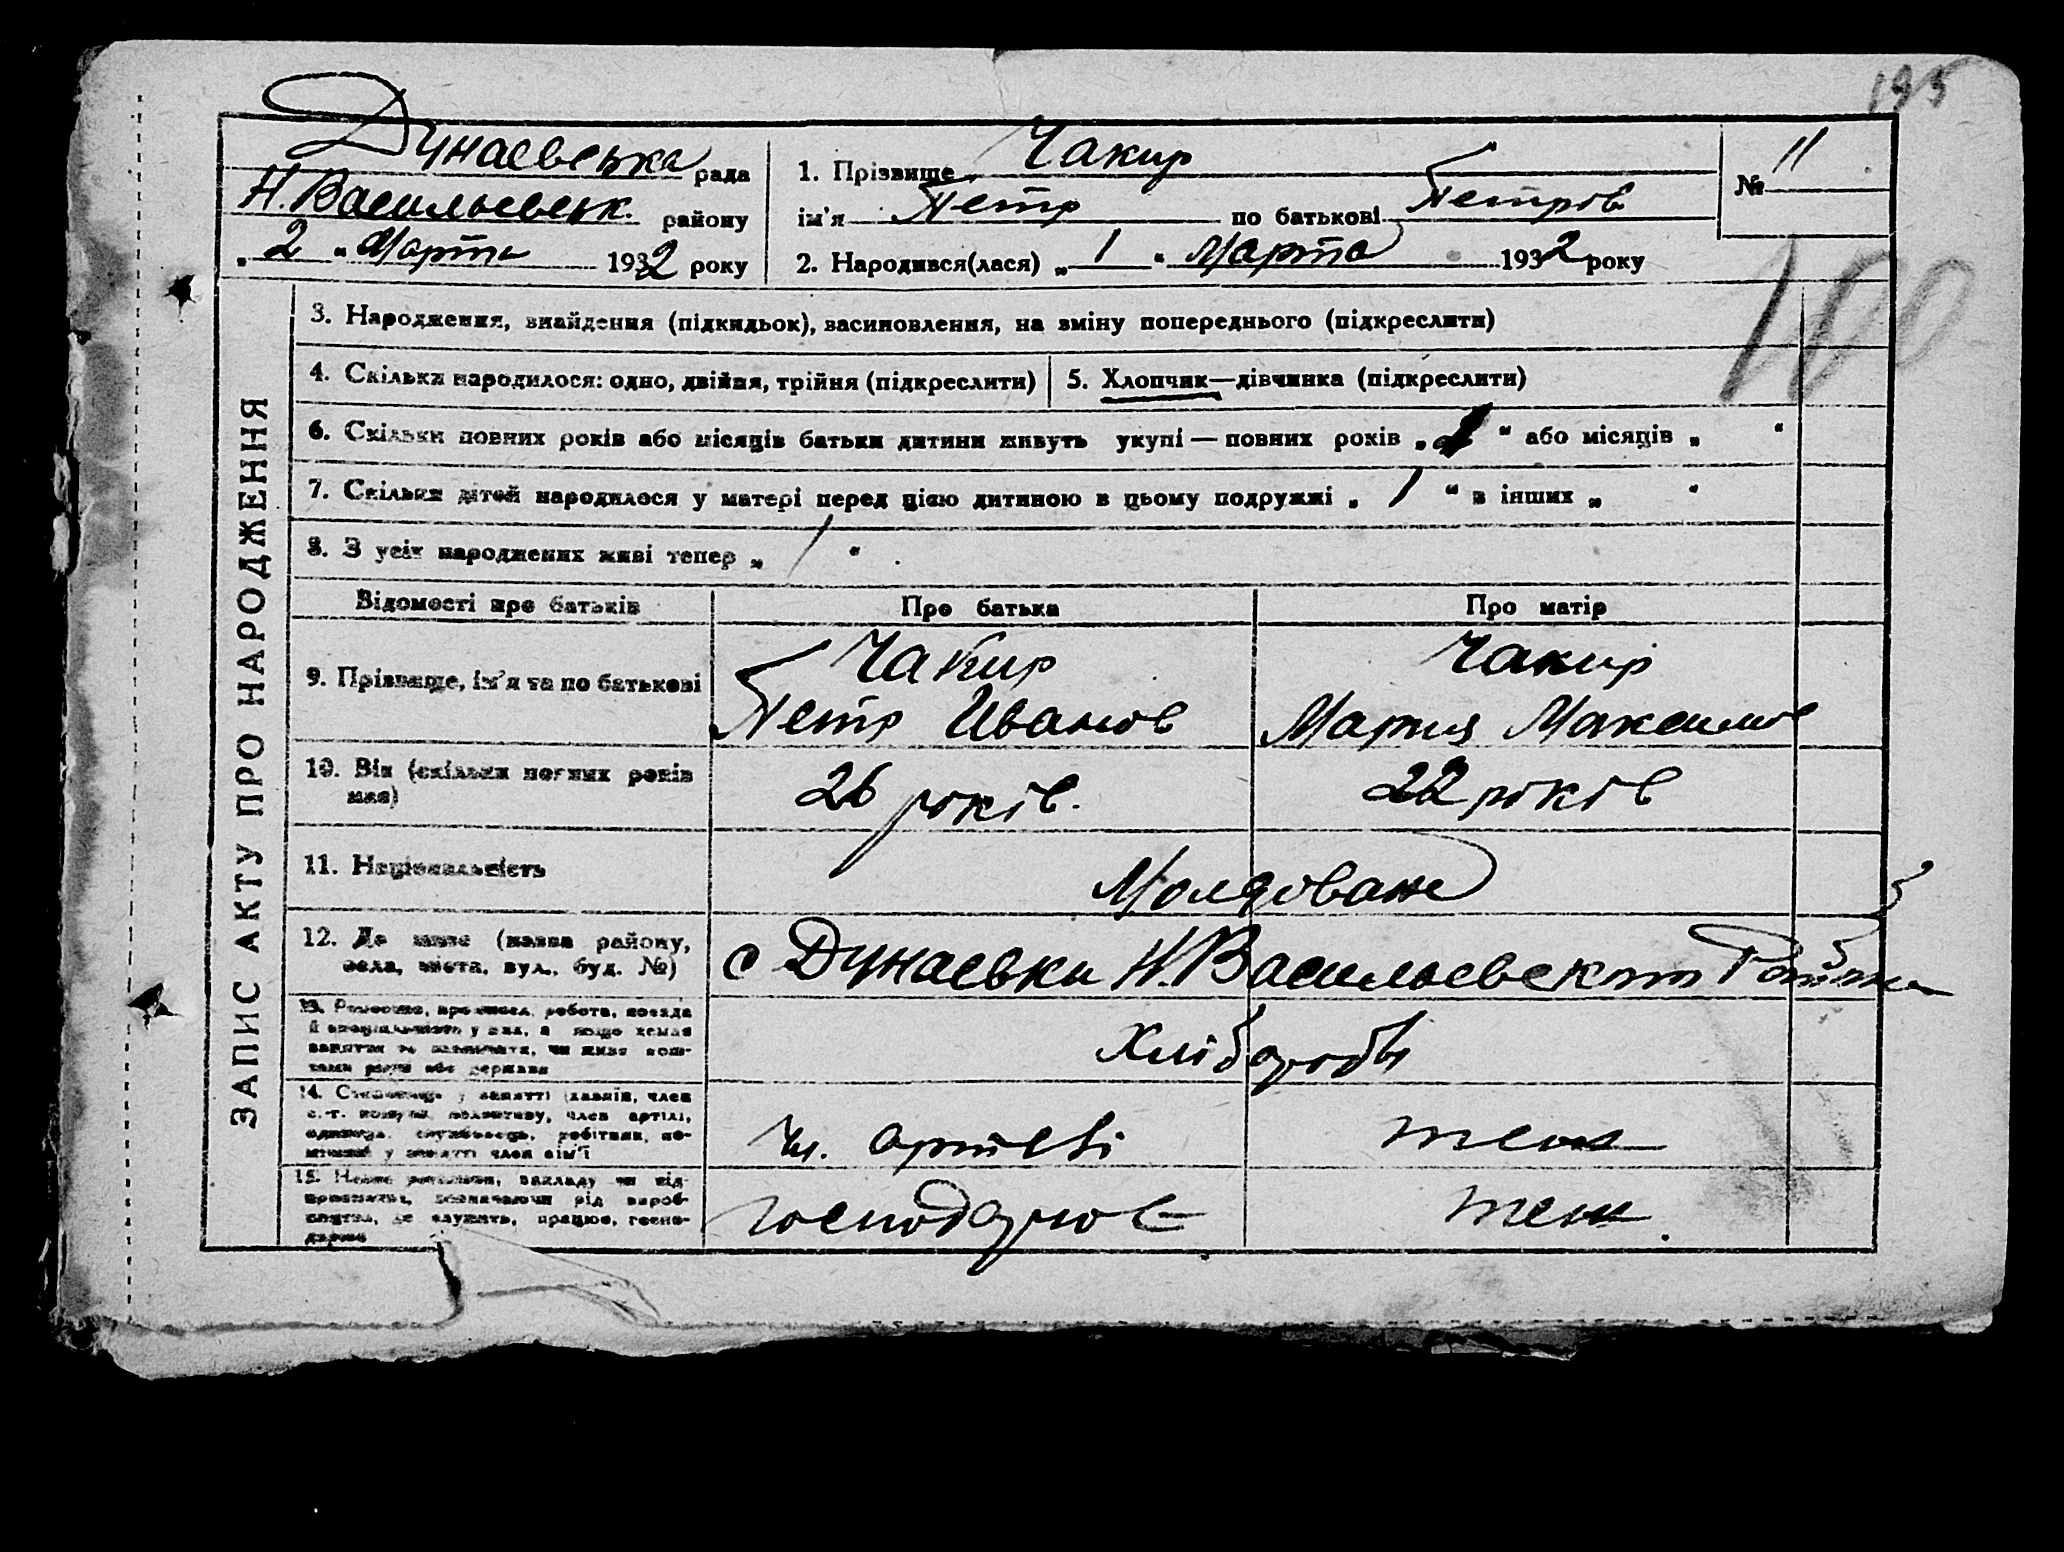 195
Дунаевська рада
Н. Васильевськ. району
„ 2 “ Марта 1932 року
1. Прізвище Чакир
ім'я Петр по батькові Петров
2. Народився(лася) „ 1 “ Марта 1932 року
№ 11
100
ЗАПИС АКТУ ПРО НАРОДЖЕННЯ
3. Народження, знайдення (підкидьок), засиновлення, на зміну попереднього (підкреслити)
4. Скільки народилося: одно, двійня, трійня (підкреслити)
5. Хлопчик—дівчинка (підкреслити)
6. Скільки повних років або місяців батьки дитини живуть укупі — повних років „ “ або місяців „ “
7. Скільки дітей народилося у матері перед цією дитиною в цьому подружжі „ 1 “ в інших „ “
8. З усіх народжених живі тепер „ 1 “
Відомості про батьків
Про батька
Про матір
9. Прізвище, ім'я та по батькові
Чакир
Петр Иванов
Чакир
Мария Максимов
10. Вік (скільки повних років
має)
26 років.
22 років
11. Національність
Молдоване
12. Де живе (назва району,
села, міста, вул., буд. №)
с Дунаевка Н. Васильевского Района
13. Ремество, промисел, робота, посада
й спеціальність у них, а якщо немає
заняття то зазначити, чи живе кош-
тами рідні або держави
Хлібороби
14. Становище у занятті (хазяїн, член
с.-г. комуни, колективу, член артілі,
одинець, службовець, робітник, по-
мічний у занятті член сім'ї
чл. артелі
теж
15. Назва установи, закладу чи під-
приємства, зазначаючи рід вироб-
ництва, де служить, працює, госпо-
дарює
господарює
теж